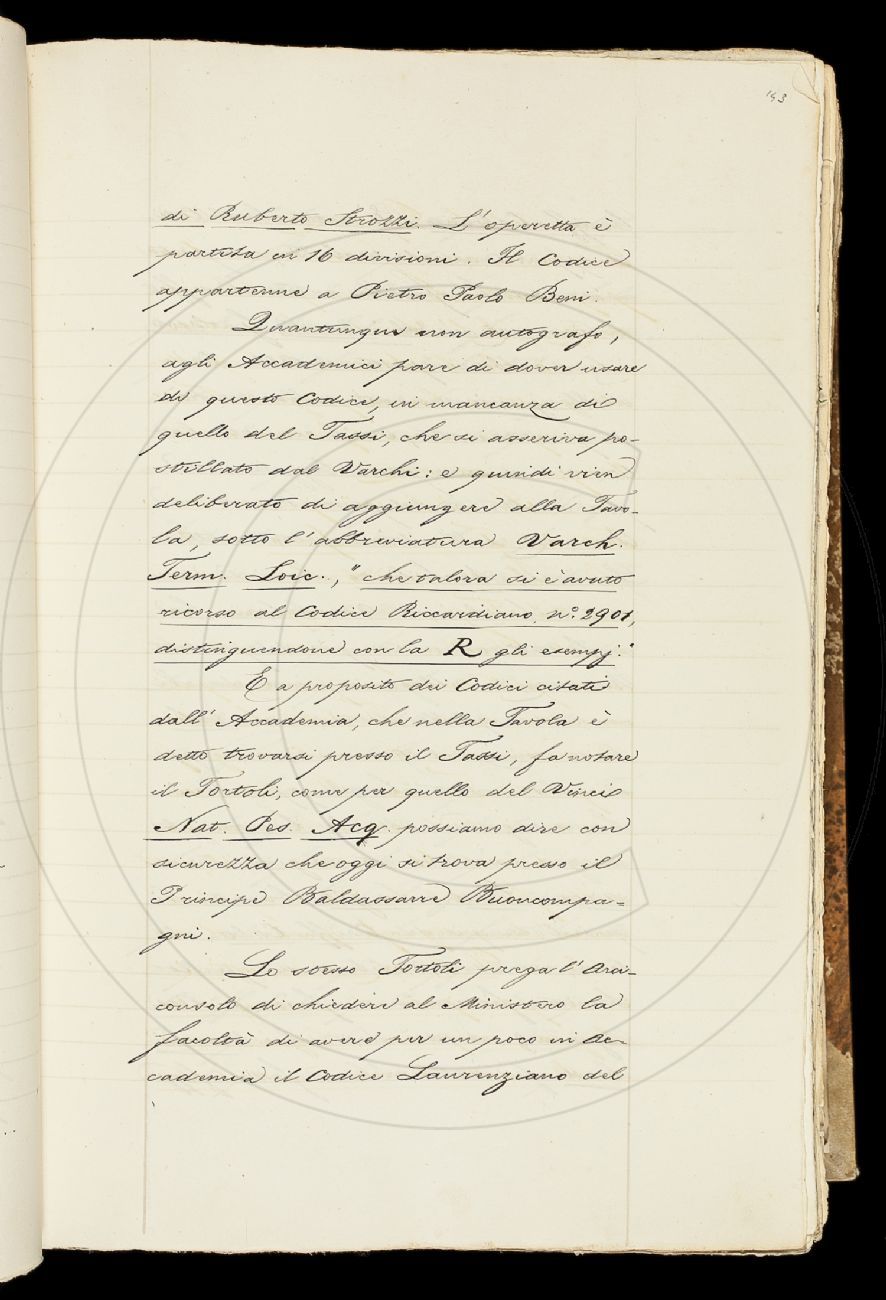 143
di Ruberto Strozzi. L'operetta è
partita in 16 divisioni. Il Codice
appartenne a Pietro Paolo Beni.
Quantunque non autografo,
agli Accademici pare di dover usare
di questo Codice, in mancanza di
quello del Tassi, che si asseriva po-
stillato dal Varchi: e quindi vien
deliberato di aggiungere alla Tavo-
la, sotto l'abbreviatura Varch.
Term. Loic., "che talora si è avuto
ricorso al Codice Riccardiano n.° 2901,
distinguendone con la R gli esempj."
E a proposito dei Codici citati
dall'Accademia, che nella Tavola è
detto trovarsi presso il Tassi, fa notare
il Tortoli, come per quello del Vinci
Nat. Pes. Acq. possiamo dire con
sicurezza che oggi si trova presso il
Principe Baldassarre Buoncompa-
gni.
Lo stesso Tortoli prega l'Arci-
consolo di chiedere al Ministero la
facoltà di avere per un poco in Ac-
cademia il Codice Laurenziano del